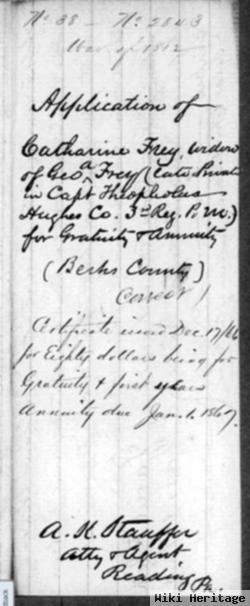 No 38 — No 2843
War of 1812
Application of
Catharine Frey, widow
of Geo A Frey (late Private
in Capt Theopholus
Hughes Co. 3d Reg. P. M.)
for Gratuity & Annuity
(Berks County)
Correct
Certificate issued Dec. 17/66
for Eighty dollars being for
Gratuity & first year
Annuity due Jan. 1. 1867.
A. K. Stauffer
Atty & Agent
Reading Pa.
Wiki Heritage